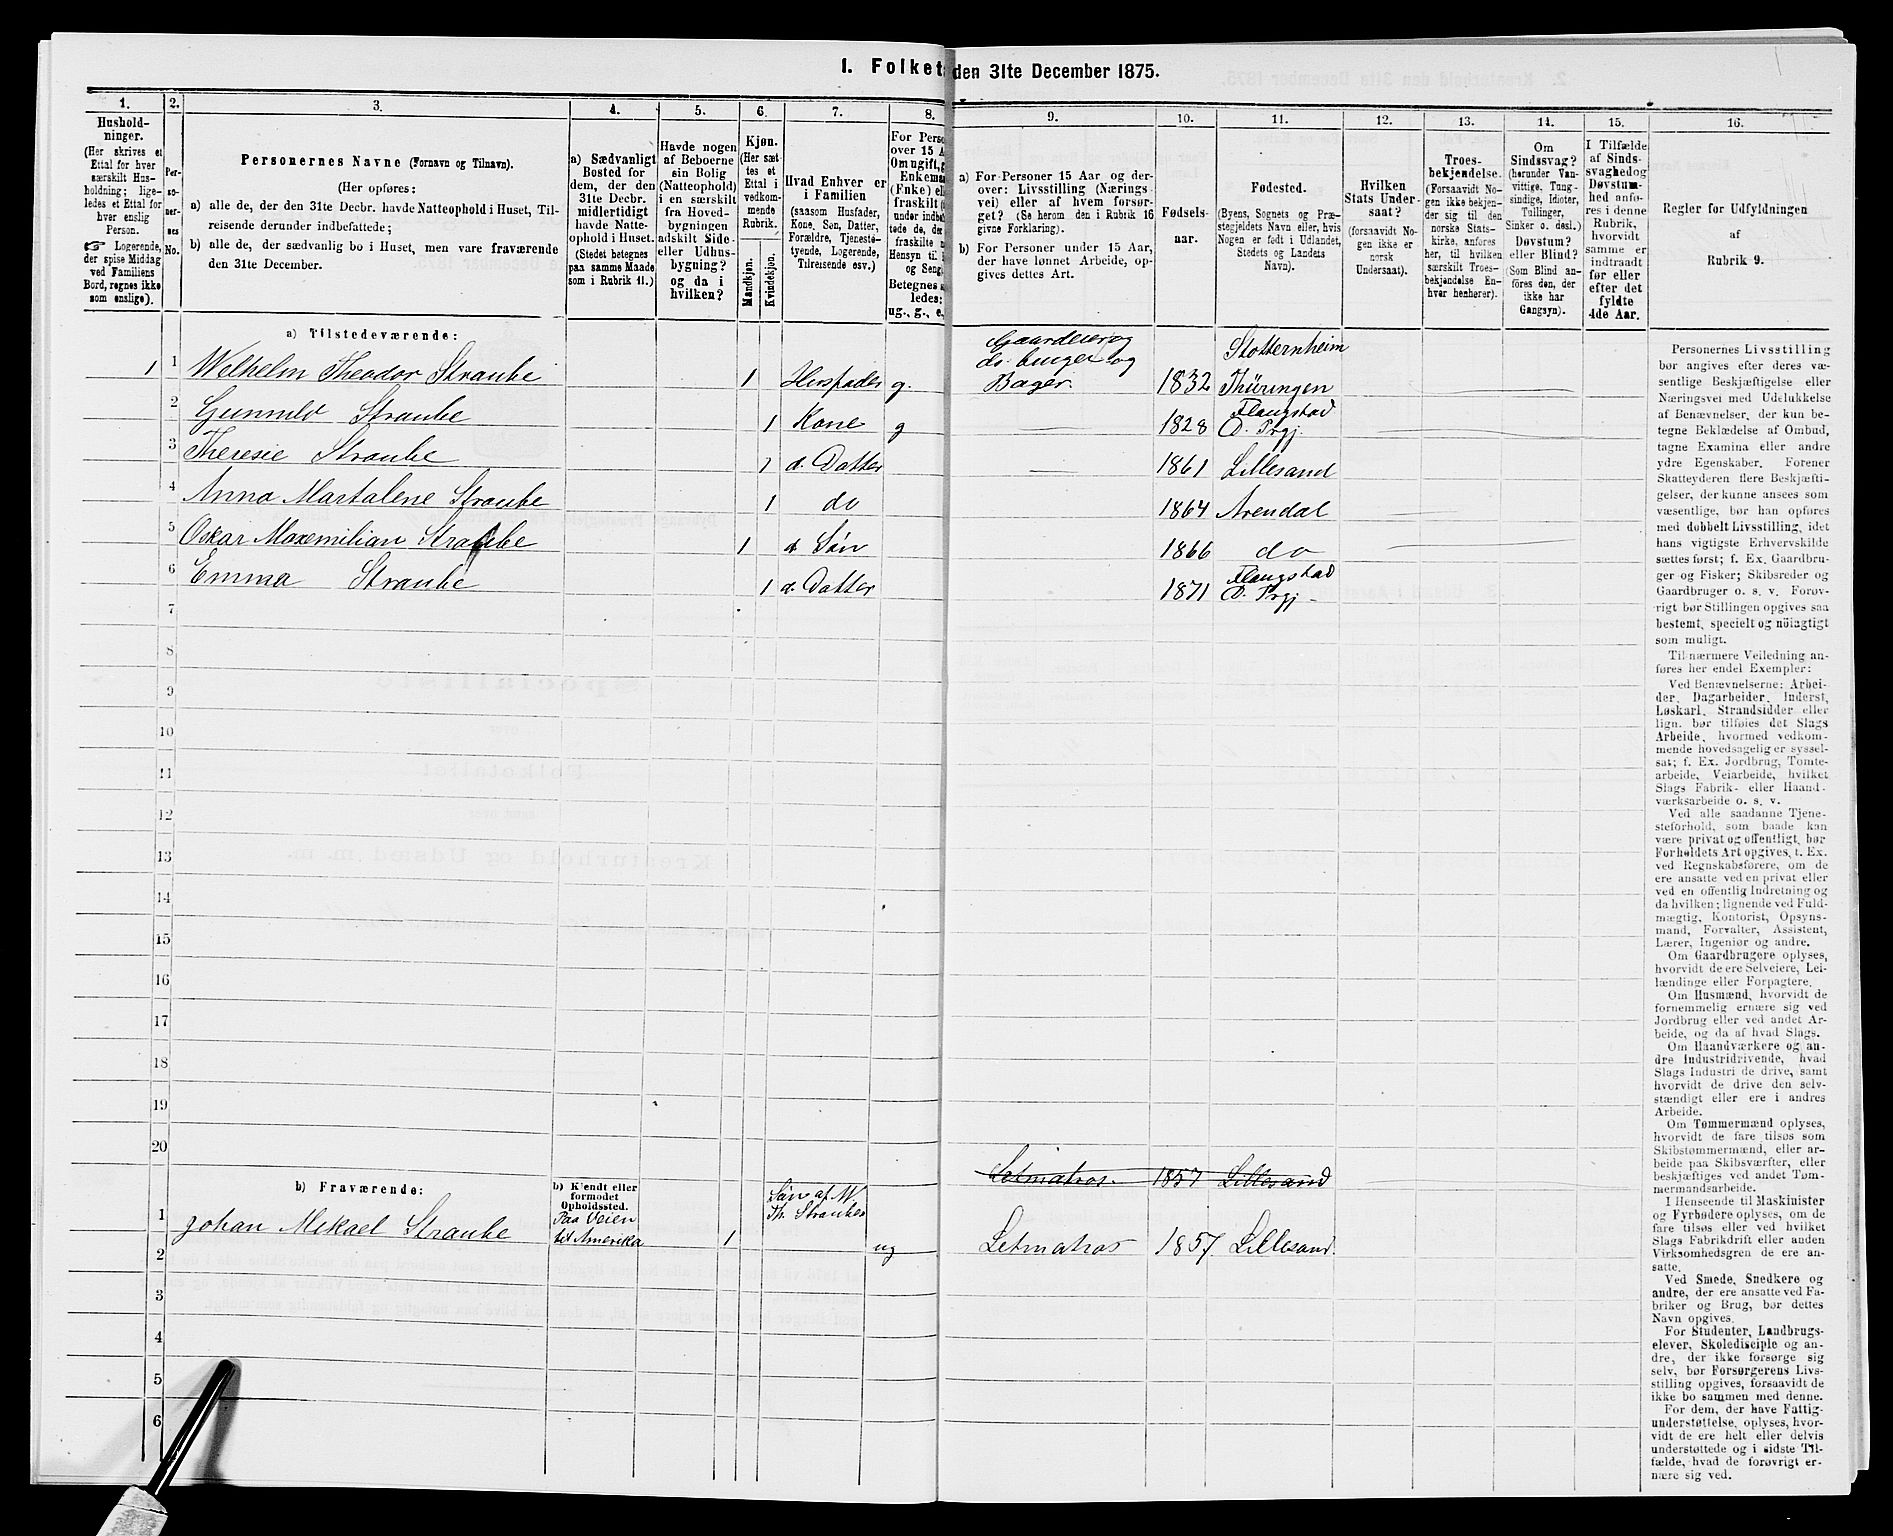 I. Folket den 31te December 1875.
1. 2. 3. 4. 5. 6. 7. 8. 9. 10. 11. 12. 13. 14. 15. 16.
Hushold-
ninger.
(Her skrives et
Ettal for hver
særskilt Hus-
holdning; lige-
ledes et Ettal for
hver enslig
Person.
☞ Logerende,
der spise Middag
ved Familiens
Bord, regnes ikke
som enslige).
Per-
so-
ner-
nes
No.
Personernes Navne (Fornavn og Tilnavn).
(Her opføres:
a) alle de, der den 31te Decbr. havde Natteophold i Huset, Til-
reisende derunder indbefattede;
b) alle de, der sædvanlig bo i Huset, men vare fraværende
den 31te December.
a) Sædvanligt
Bosted for
dem, der den
31te Decbr.
midlertidigt
havde Natte-
ophold i Huset.
(Stedet betegnes
paa samme Maade
som i Rubrik 11.)
Havde nogen
af Beboerne
sin Bolig
(Natteophold)
i en særskilt
fra Hoved-
bygningen
adskilt Side-
eller Udhus-
bygning?
og da i
hvilken?
Kjøn.
(Her sæt-
tes et
Ettal i
vedkom-
mende
Rubrik.)
Mandkjøn.
Kvindekjøn.
Hvad Enhver er
i Familien
(saasom Husfader,
Kone, Søn, Datter,
Forældre, Tjeneste-
tyende, Logerende,
Tilreisende osv.)
For Perso
over 15 A
Om ugift, g
Enkema
(Fnke) el
fraskilt (
under indbe
tede de, de
fraskilte
Hensyn til
og Seng
Betegnes s
ledes:
ug., g., e,
a) For Personer 15 Aar og der-
over: Livsstilling (Nærings-
vei) eller af hvem forsør-
get? (Se herom den i Rubrik 16
givne Forklaring).
b) For Personer under 15 Aar,
der have lønnet Arbeide, op-
gives dettes Art.
Fødsels-
aar.
Fødested.
(Byens, Sognets og Præ-
stegjeldets Navn eller, hvis
Nogen er født i Udlandet,
Stedets og Landets
Navn).
Hvilken
Stats Under-
saat?
(forsaavidt No-
gen ikke er
norsk
Undersaat).
Troes-
bekjendelse.
(Forsaavidt No-
gen ikke bekjen-
der sig til den
norske Stats-
kirke, anføres
her, til hvilken
særskilt Troes-
bekjendelse En-
hver henhører).
Om
Sindssvag?
(herunder Van-
vittige, Tung-
sindige, Idioter,
Tullinger,
Sinker o. desl.)
Døvstum?
eller Blind?
(Som Blind an-
føres den, der
ikke har
Gangsyn).
I Tilfælde
af Sinds-
svaghed og
Døvstum-
hed anfø-
res i denne
Rubrik,
hvorvidt
samme er
indtraadt
før eller
efter det
fyldte
4de Aar.
Regler for Udfyldningen
af
Rubrik 9.
a) Tilstedeværende:
Gaardeier og
do. bruger og
Stotternheim
1 1 Welhelm Theodor Straube 1 Husfader g. Bager. 1832 Thüringen
Flaugstad
2 Gunnild Straube 1 Kone g 1828 Prgj.
3 Theresie Straube 1 d. Datter 1861 Lillesand
4 Anna Martalene Straube 1 do 1864 Arendal
5 Oskar Maxemilian Straube 1 d Søn 1866 do
Flaugstad
6 Emma Straube 1 d. Datter 1871 Prgj.
7
8
9
10
11
12
13
14
15
16
17
18
19
20
Letmatros. 1857 Lillesand
b) Fraværende:
b) Kjendt eller
formodet
Opholdssted.
Søn af W.
Th. Straube
Paa Veien
1 Johan Mikael Straube til Amerika 1 ug Letmatros 1857 Lillesand
2
3
4
5
6
Personernes Livsstilling
bør angives efter deres væ-
sentlige Beskjæftigelse eller
Næringsvei med Udelukkelse
af Benævnelser, der kun be-
tegne Beklædelse af Ombud,
tagne Examina eller andre
ydre Egenskaber. Forener
Skatteyderen flere Beskjæfti-
gelser, der kunne ansees som
væsentlige, bør han opføres
med dobbelt Livsstilling, idet
hans vigtigste Erhvervskilde
sættes først; f. Ex. Gaardbru-
ger og Fisker; Skibsreder og
Gaardbruger o. s. v. Forøv-
rigt bør Stillingen opgives saa
bestemt, specielt og nøiagtigt
som muligt.
Til nærmere Veiledning an-
føres her endel Exempler:
Ved Benævnelserne: Arbei-
der, Dagarbeider, Inderst,
Løskarl, Strandsidder eller
lign. bør tilføies det Slags
Arbeide, hvormed vedkom-
mende hovedsagelig er syssel-
sat; f. Ex. Jordbrug, Tomte-
arbeide, Veiarbeide, hvilket
Slags Fabrik- eller Haand-
værksarbeide o. s. v.
Ved alle saadanne Tjene-
steforhold, som baade kan
være privat og offentligt, bør
Forholdets Art opgives, t. Ex.
ved Regnskabsførere, om de
ere ansatte ved en privat eller
ved en offentlig Indretning og
da hvilken; lignende ved Fuld-
mægtig, Kontorist, Opsyns-
mand, Forvalter, Assistent,
Lærer, Ingeniør og andre.
Om Gaardbrugere oplyses,
hvorvidt de ere Selveiere, Lei-
lændinge eller Forpagtere.
Om Husmænd, hvorvidt de
fornemmelig ernære sig ved
Jordbrug eller ved andet Ar-
beide, og da af hvad Slags.
Om Haandværkere og an-
dre Industridrivende, hvad
Slags Industri de drive, samt
hvorvidt de drive den selv-
stændigt eller ere i andres
Arbeide.
Om Tømmermænd oplyses,
hvorvidt de fare tilsøs som
Skibstømmermænd, eller ar-
beide paa Skibsværfter, eller
beskjæftiges ved andet Tøm-
mermandsarbeide.
I Henseende til Maskinister
og Fyrbødere oplyses, om de
fare tilsøs eller ved hvilket
Slags Fabrikdrift eller anden
Virksomhedsgren de ere an-
satte.
Ved Smede, Snedkere og
andre, der ere ansatte ved Fa-
briker og Brug, bør dettes
Navn opgives.
For Studenter, Landbrugs-
elever, Skoledisciple og an-
dre, der ikke forsørge sig
selv, bør Forsørgerens Livs-
stilling opgives, forsaavidt de
ikke bo sammen med denne.
For dem, der have Fattig-
understøttelse, oplyses, hvor-
vidt de ere helt eller delvis
understøttede og i sidste Til-
fælde, hvad de forøvrigt er-
nære sig ved.